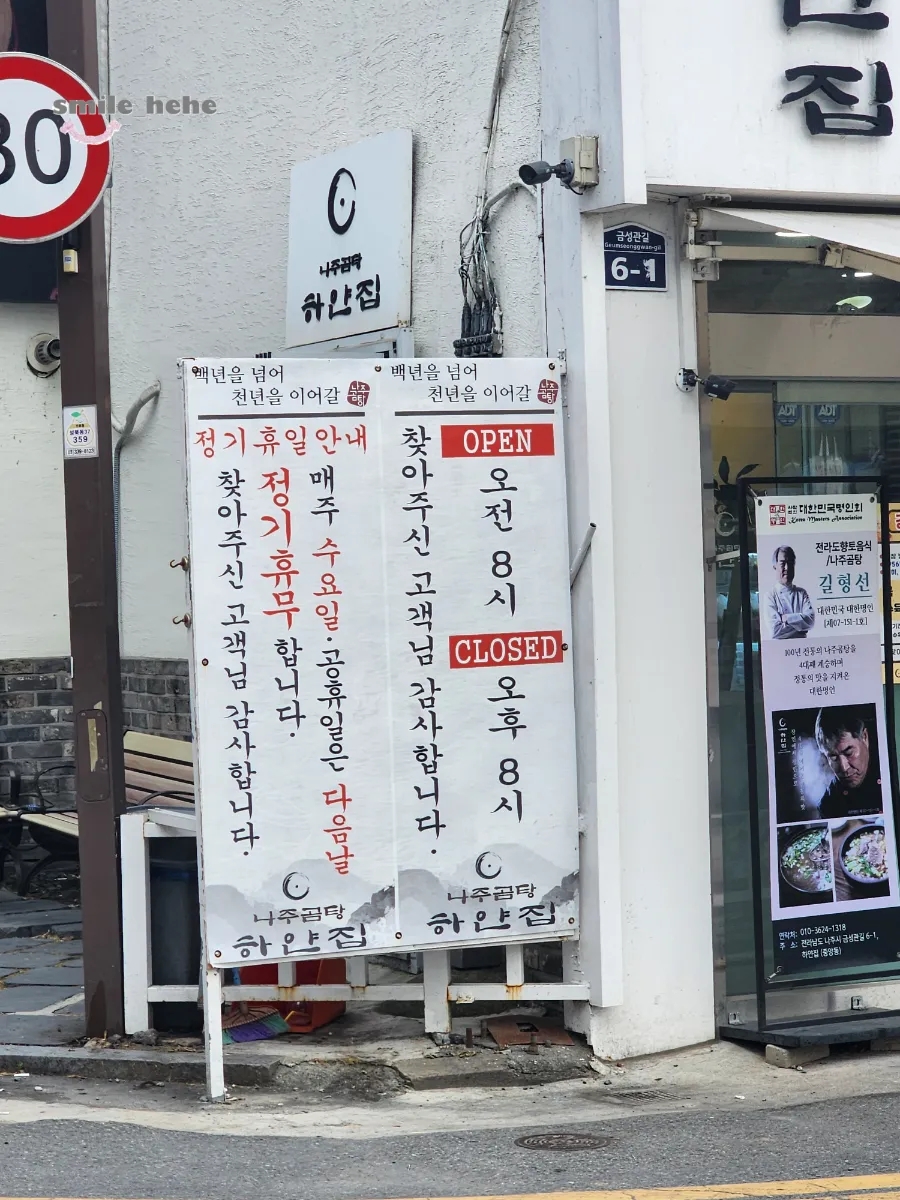 smile hehe
30
나주곰탕
하얀집
집
금성관길
Geumseonggwan-gil
6-1
백년을 넘어
천년을 이어갈
나주곰탕
정기휴일안내
매주 수요일·공휴일은 다음날
정기휴무 합니다.
찾아주신 고객님 감사합니다.
나주곰탕
하얀집
백년을 넘어
천년을 이어갈
나주곰탕
OPEN
오전 8시
CLOSED
오후 8시
찾아주신 고객님 감사합니다.
나주곰탕
하얀집
359
ADT
ADT
대한민국명인회
Korea Masters Association
전라도향토음식
/나주곰탕
길형선
대한민국 대한명인
[제07-151-1호]
100년 전통의 나주곰탕을
4대째 계승하며
전통의 맛을 지켜온
대한명인
하얀집
연락처: 010-3624-1318
주 소: 전라남도 나주시 금성관길 6-1,
하얀집 (중앙동)